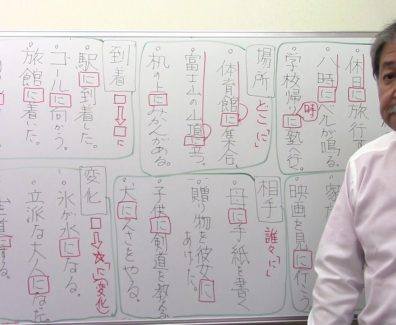 休日に旅行
八時にベルが鳴る。
学校帰りに塾へ行く。
時
場所
どこ「に」
体育館に集合。
富士山の山頂に立つ。
机の上にペンがある。
到着
駅に到着した。
ゴールに向かう。
旅館に着いた。
映画を見に行こう
相手
誰々「に」
母に手紙を書く
贈り物を彼女に
あげた。
子供に剣道を教える。
犬にえさをやる。
変化
氷が水になる。
立派な大人になった。